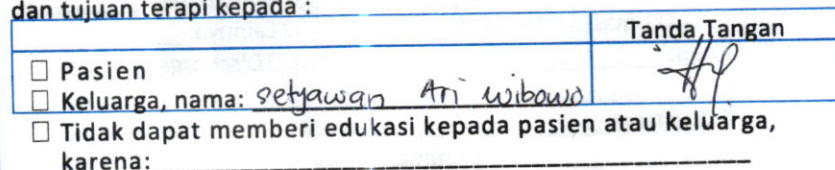 dan tujuan terapi kepada :
Tanda Tangan
☐ Pasien
☐ Keluarga, nama: setyawan Ari wibowo
☐ Tidak dapat memberi edukasi kepada pasien atau keluarga,
karena: